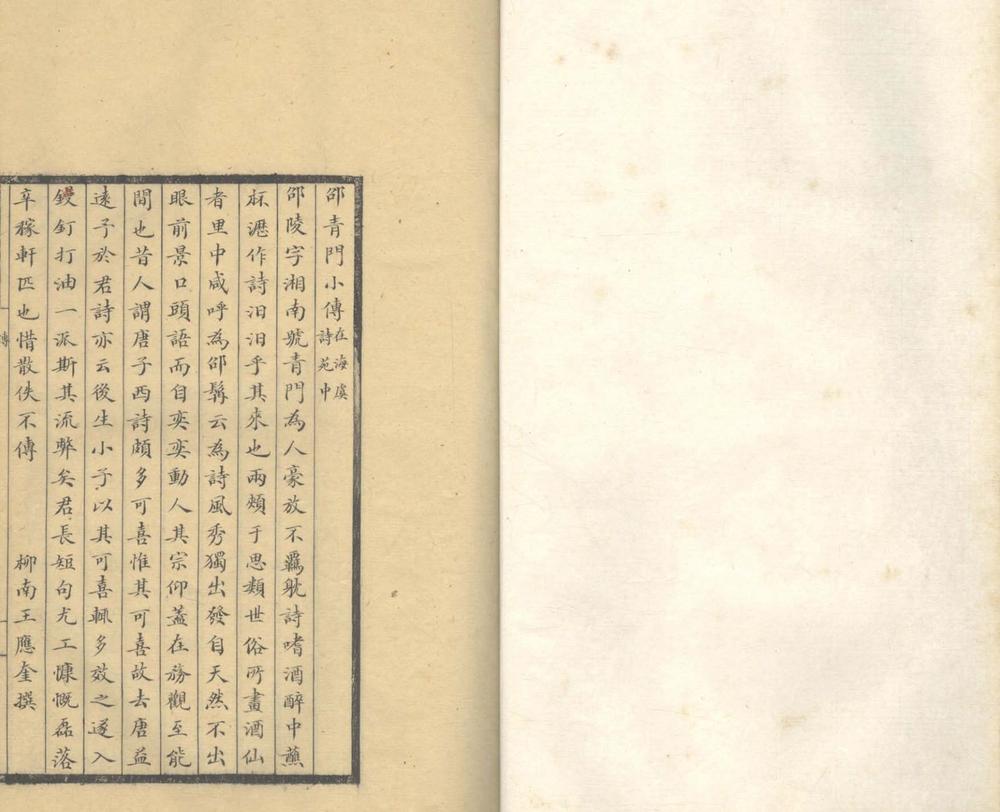 邵青門小傳在海虞詩苑中
邵陵字湘南號青門為人豪放不羈耽詩嗜酒醉中蘸
桮瀝作詩汩汩乎其來也兩頰于思類世俗所畫酒仙
者里中咸呼為邵鬍云為詩風秀獨出發自天然不出
眼前景口頭語而自奕奕動人其宗仰蓋在務觀至能
間也昔人謂唐子西詩頗多可喜惟其可喜故去唐益
遠予於君詩亦云後生小子以其可喜輒多效之遂入
鏝釘打油一派斯其流弊矣君長短句尤工慷慨磊落
辛稼軒匹也惜散佚不傳　柳南王應奎撰
傳